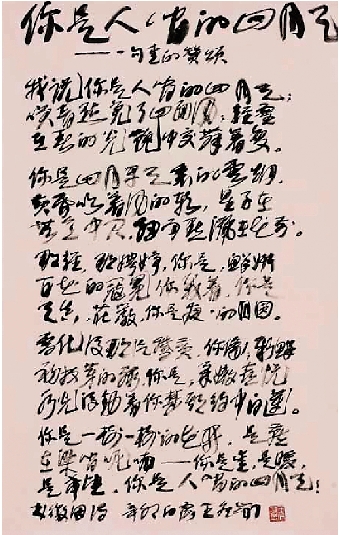 你是人间的四月天
——一句爱的赞颂
我说你是人间的四月天；
笑音点亮了四面风；轻灵
在春的光艳中交舞着变。
你是四月早天里的云烟，
黄昏吹着风的软，星子在
无意中闪，细雨点洒在花前。
那轻，那娉婷，你是，鲜妍
百花的冠冕你戴着，你是
天真，庄严，你是夜夜的月圆。
雪化后那片鹅黄，你像；新鲜
初放芽的绿，你是；柔嫩喜悦
水光浮动着你梦期待中白莲。
你是一树一树的花开，是燕
在梁间呢喃——你是爱，是暖，
是希望，你是人间的四月天！
林徽因诗